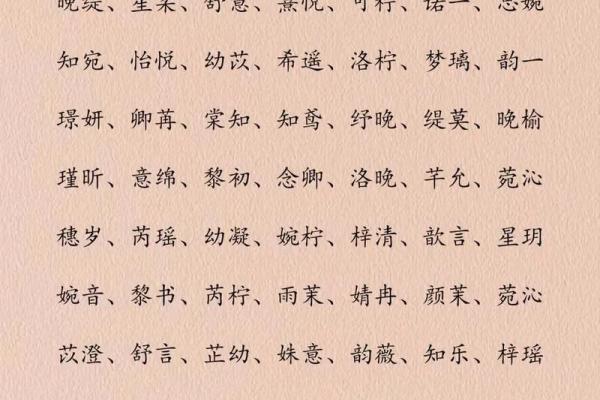 晚缇、星柔、舒意、熹悦、可柠、诺一、念婉
知宛、怡悦、幼苡、希遥、洛柠、梦璃、韵一
璟妍、卿苒、棠知、知鸢、纾晚、缇莫、晚榆
瑾昕、意绵、黎初、念卿、洛晚、芊允、菀沁
穗岁、芮瑶、幼凝、婉柠、梓清、歆言、星玥
婉音、黎书、芮柠、雨茉、婧冉、颜茉、菀沁
苡澄、舒言、芷幼、姝意、韵薇、知乐、梓瑶